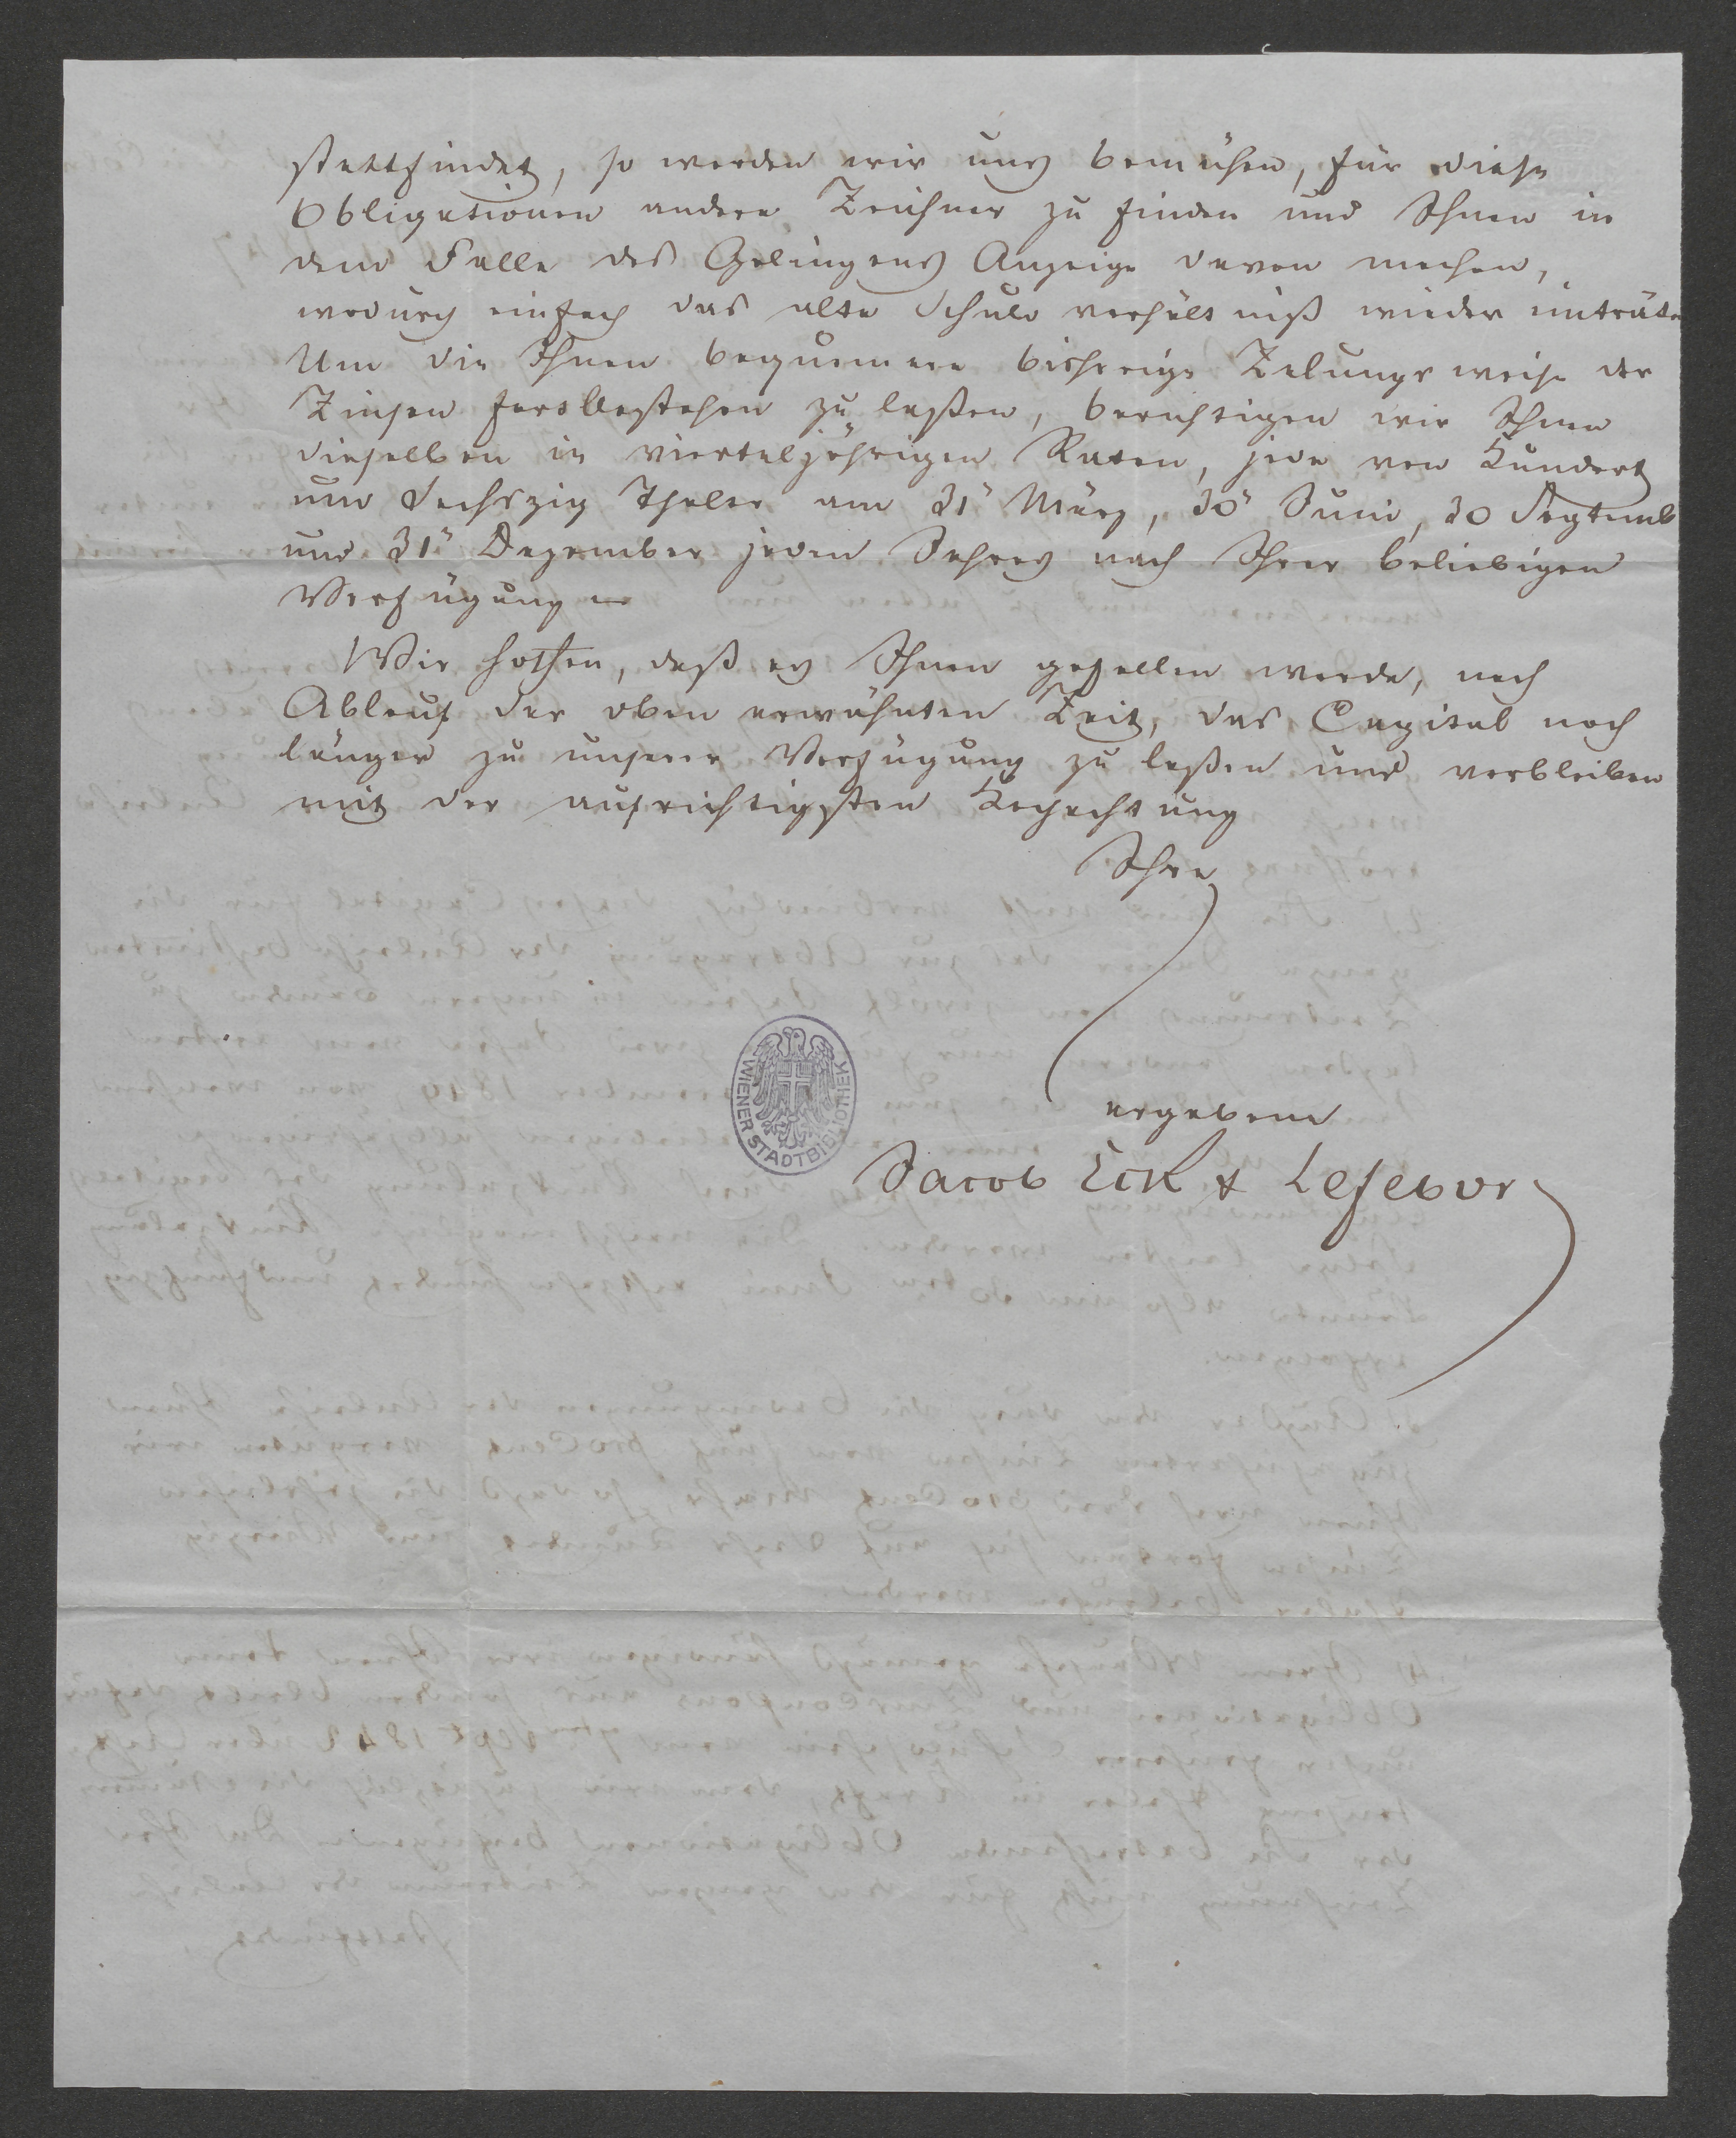 stattfindet, so werden wir uns bemühen, für diese
Obligationen andere Zeichner zu finden und Ihnen in
dem Falle des Gelingens Anzeige davon machen,
wodurch einfach das alte Schuld verhältniß wieder einträte
Um die Ihnen bequemere bisherige Zalungsweise der
Zinsen fortbestehen zu laßen, berichtigen wir Ihnen
dieselben in vierteljährigen Raten, jede von Hundert
und Sechszig Thaler am 31" März, 30" Juni, 30 Septemb
und 31" Dezember jeden Jahres nach Ihrer beliebigen
Verfügung –
Wir hoffen, daß es Ihnen gefallen werde, nach
Ablauf der oben erwähnten Zeit, das Capital noch
länger zu unserer Verfügung zu laßen und verbleiben
mit der aufrichtigsten Hochachtung
Ihre
ergebene
Jacob Eck & Lefebvre
WIENER STADTBIBLIOTHEK